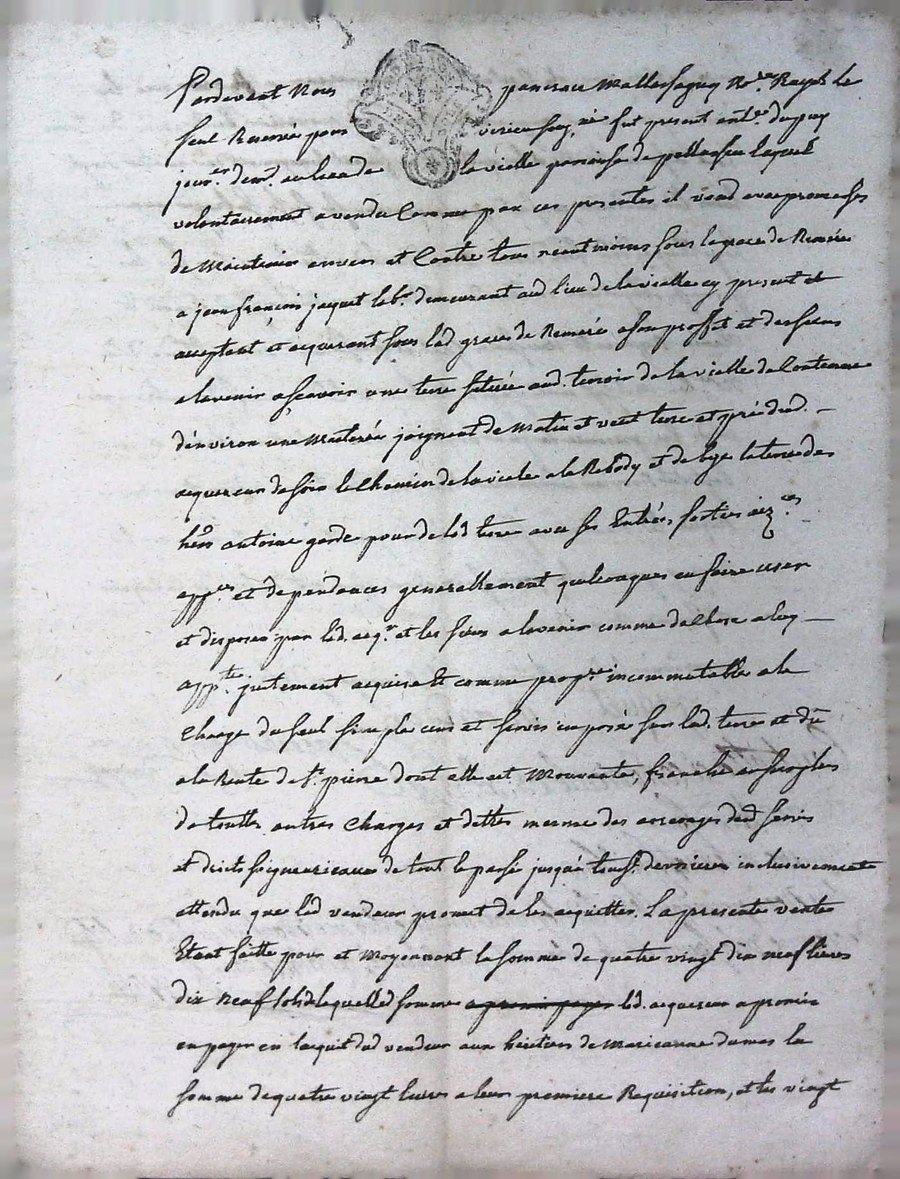 Pardevant Nous pancrace Mallessaguy No.re Royal le
seul Reservé pour fut present ant.e dupuy
jour.er dem.t au lieu de la vielle parroisse de lequel
volontairement a vendu Comme par ces presentes il vend avec promesses
de Maintenir envers et Contre tous neantmoins sous la grace de Remeré
a jean françois jaquet lab.r demeurant aud lieu de la vielle cy present et
acceptant et acquerant sous lad grace de Remeré a son proffit et des siens
a lavenir asçavoir une terre scituée aud. terroir de la vielle de Contenue
denviron une Meterée joignant de Matin et vent terre et pré dud. —
acquereur de soir le Chemin de la viele a la Rebody et de bize la terre des
hers antoine garde pour de lad terre avec ses Entrés, sorties aiz.ces
app.ces et dependances generallement quelconques en faire user
et disposer par led. acq.r et les siens a lavenir comme de Chose a luy —
app.te justement acquise Et comme prop.re incommutable a la
Charge du seul simple cens et servis imposé sur lad. terre et dû
a la Rente de S.t pierre dont elle est Mouvante, franche au surplus
de touttes autres Charges et dettes mesme des arrerages dud servis
et droits seigneuriaux de tout le passé jusqua touss.ts derniere inclusivement
attendu que led vendeur promet de les acquitter. La presente vente
Etant faitte pour et Moyennant la somme de quatre vingt dix neuf livres
dix neuf sols laquelled somme a promis payer led. acquereur a promis
en payer en lacquit dud vendeur aux heritiers de Marieanne dumas la
somme de quatre vingt livres a leur premiere Requisition, et les vingt